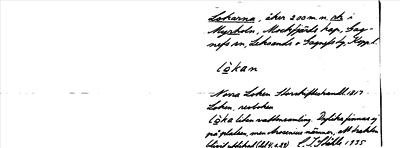 Lokarna, åker 200 m n. ote i
Myrholn, Mockfjärds kap, Sag-
nefs sn, Leksands o Gagnefs tg, Kopp l.
lòkan
Norra Loken Storskifteshandl. 1817
Loken, restoken
lòka liten vattensamling. Dylika finnas ej
på platsen, men Arosenius nämner, att trakten
blivit utdikad
C. I. Ståhle 1935